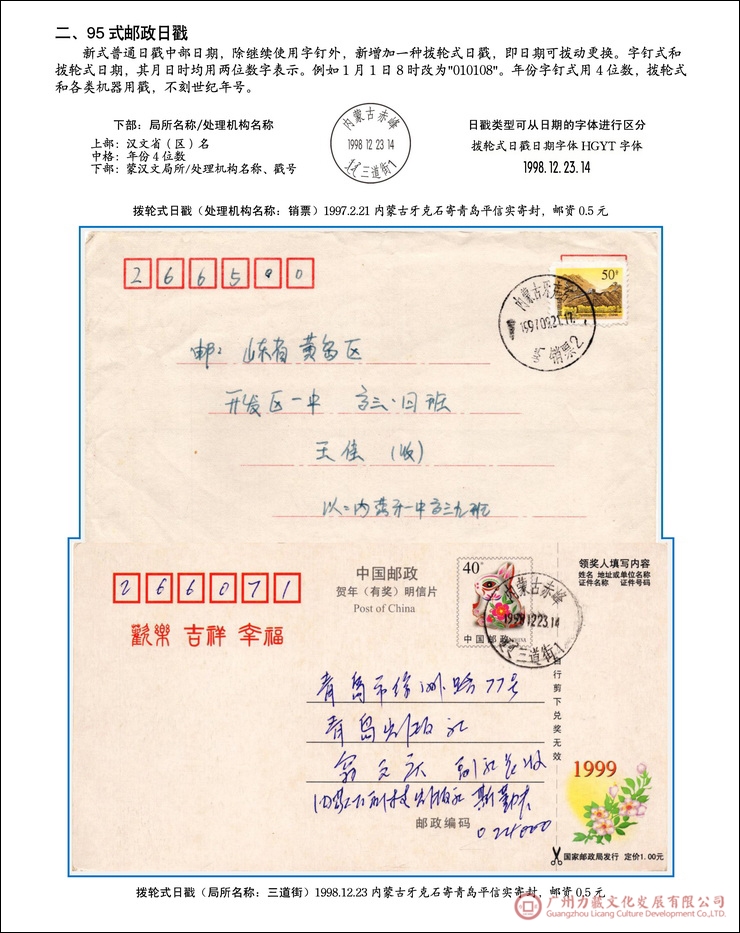 二、95 式邮政日戳
新式普通日戳中部日期，除继续使用字钉外，新增加一种拨轮式日戳，即日期可拨动更换。字钉式和
拨轮式日期，其月日时均用两位数字表示。例如1月1日8时改为"010108"。年份字钉式用4位数，拨轮式
和各类机器用戳，不刻世纪年号。
下部：局所名称/处理机构名称
上部：汉文省（区）名
中格：年份4位数
下部：蒙汉文局所/处理机构名称、戳号
内蒙古赤峰
1998 12 23 14
三道街1
日戳类型可从日期的字体进行区分
拨轮式日戳日期字体 HGYT 字体
1998.12.23.14
拨轮式日戳（处理机构名称：销票）1997.2.21 内蒙古牙克石寄青岛平信实寄封，邮资 0.5 元
266590
50分
内蒙古牙克石
1997.09.21.17
销票2
邮：山东省黄岛区
开发区一中 高三·四班
王佳（收）
内蒙牙一中高三九班
266071
中国邮政
贺年（有奖）明信片
Post of China
40分
中国邮政 CHINA
内蒙古赤峰
1998 12 23 14
三道街1
领奖人填写内容
姓名 地址或单位名称
证件名称 证件号码
歡樂 吉祥 幸福
自行剪下兑奖无效
青岛市徐州路77号
青岛出版社
副社长收
出版社
邮政编码
024000
1999
国家邮政局发行 定价1.00元
拨轮式日戳（局所名称：三道街）1998.12.23 内蒙古牙克石寄青岛平信实寄封，邮资 0.5 元
广州力藏文化发展有限公司
Guangzhou Licang Culture Development Co.,LTD.